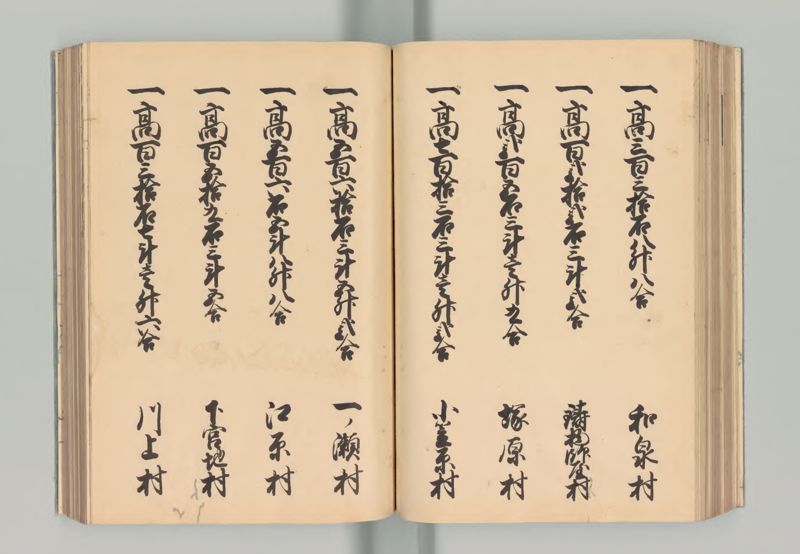 一高三百三拾石八升八合 和泉村
一高百弐拾弐石三斗弐合 鋳物師屋村
一高弐百五石三斗壱升九合 塚原村
一高七百拾三石三斗壱升弐合 小笠原村
一高五百六拾石三斗五升弐合 一ノ瀬村
一高五百六石四斗八升八合 江原村
一高百五拾九石三斗五合 下宮地村
一高百三拾石七斗壱升六合 川上村